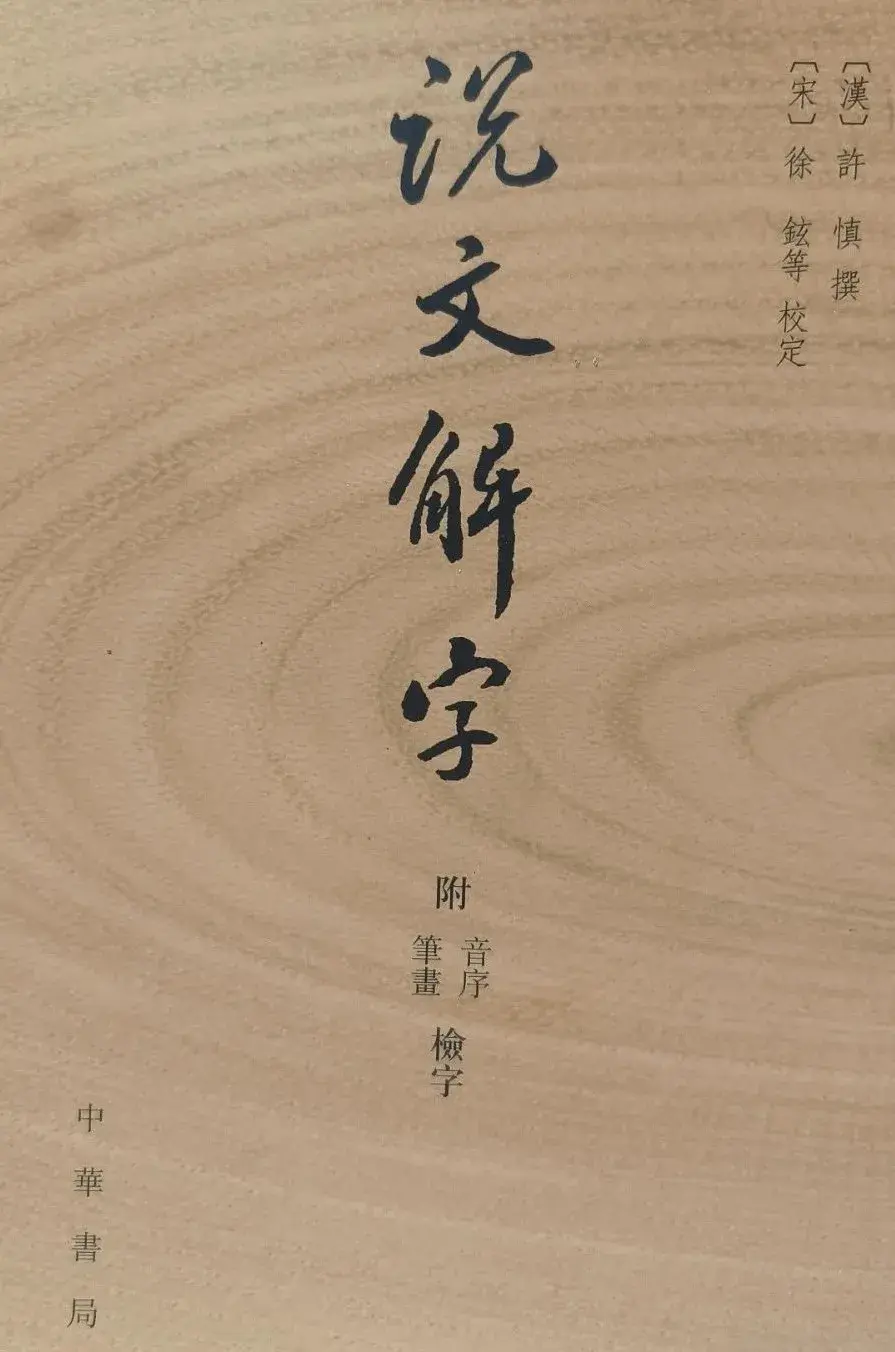 〔漢〕許慎撰
〔宋〕徐鉉等校定
说文解字
附
音序
筆畫
檢字
中華書局